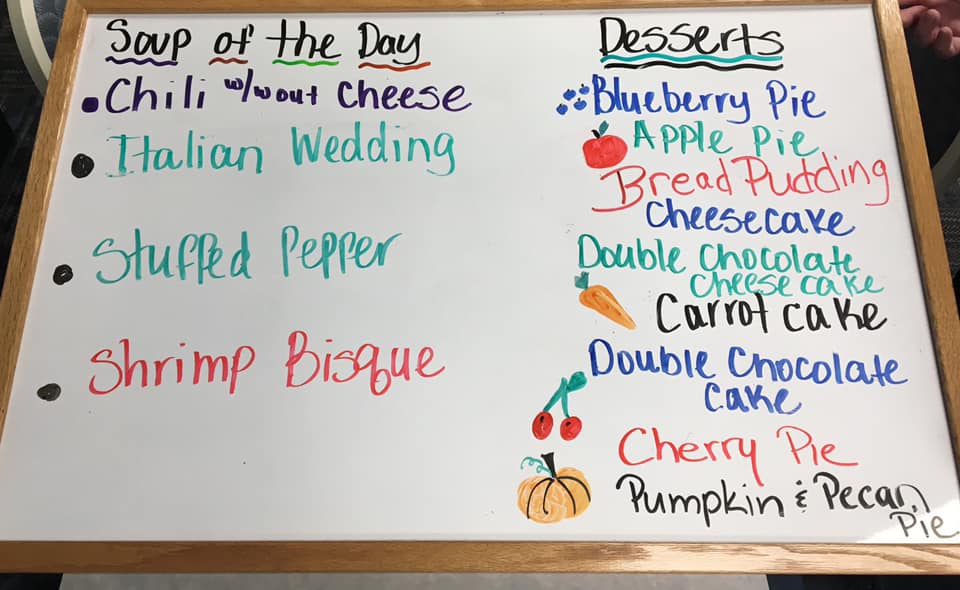 Soup of the Day
Chili w/wout Cheese
Italian Wedding
Stuffed Pepper
Shrimp Bisque
Desserts
Blueberry Pie
Apple Pie
Bread Pudding
Cheesecake
Double Chocolate
Cheesecake
Carrot cake
Double Chocolate
Cake
Cherry Pie
Pumpkin & Pecan
Pie